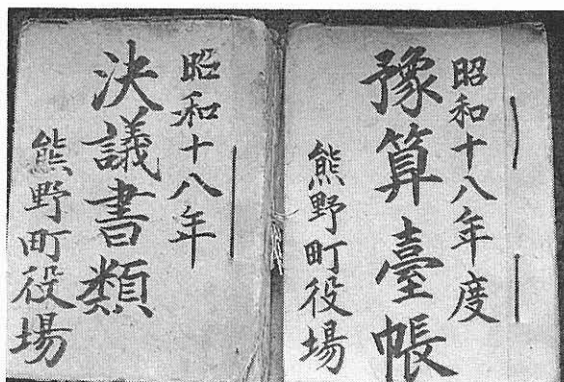 昭和十八年度
豫算臺帳
熊野町役場
昭和十八年
決議書類
熊野町役場